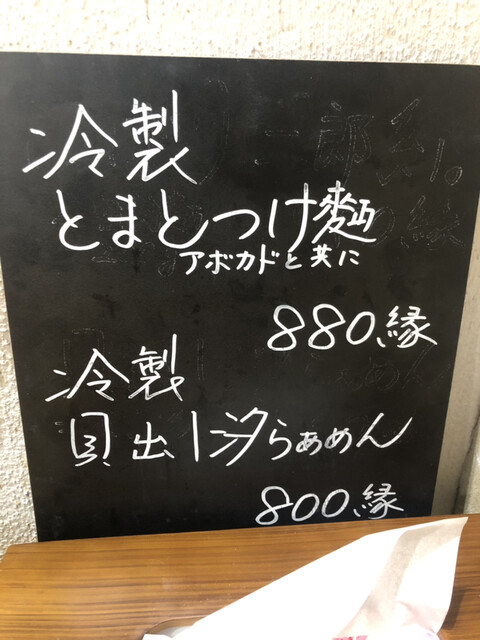 冷製
とまとつけ麺
アボカドと共に
880縁
冷製
貝出し汐らぁめん
800縁